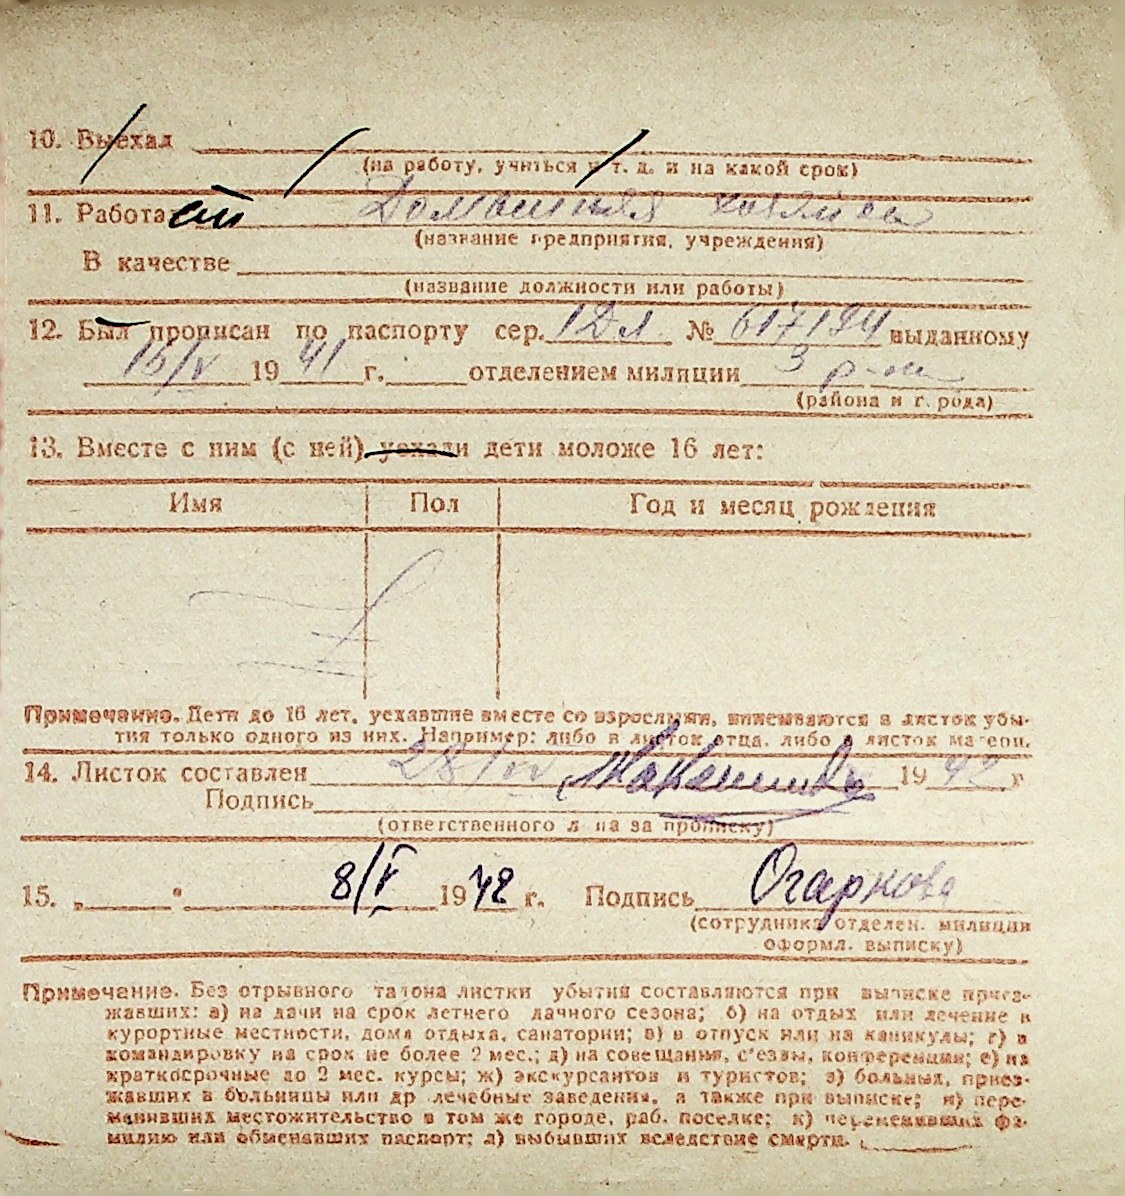 10. Выехал
(на работу, учиться и т. д. и на какой срок)
11. Работает Домашняя хозяйка
(название предприятия, учреждения)
В качестве
(название должности или работы)
12. Был прописан по паспорту сер. 1 Дл № 617194 выданному
15/V 1941 г. отделением милиции 3 р-н
(района и города)
13. Вместе с ним (с ней) уехали дети моложе 16 лет:
Имя Пол Год и месяц рождения
Примечание. Дети до 16 лет, уехавшие вместе со взрослыми, вписываются в листок убы-
тия только одного из них. Например: либо в листок отца, либо в листок матери.
14. Листок составлен 28/IV 1942 г
Подпись
(ответственного лица за прописку)
15. „ “ 8/V 1942 г. Подпись Огаркова
(сотрудника отделен. милиции
оформл. выписку)
Примечание. Без отрывного талона листки убытия составляются при выписке приез-
жавших: а) на дачи на срок летнего дачного сезона; б) на отдых или лечение в
курортные местности, дома отдыха, санатории; в) в отпуск или на каникулы; г) в
командировку на срок не более 2 мес.; д) на совещания, с'езды, конференции; е) на
краткосрочные до 2 мес. курсы; ж) экскурсантов и туристов; з) больных, приез-
жавших в больницы или др лечебные заведения, а также при выписке; и) пере-
менивших местожительство в том же городе, раб. поселке; к) переменивших фа-
милию или обменавших паспорт; л) выбывших вследствие смерти.